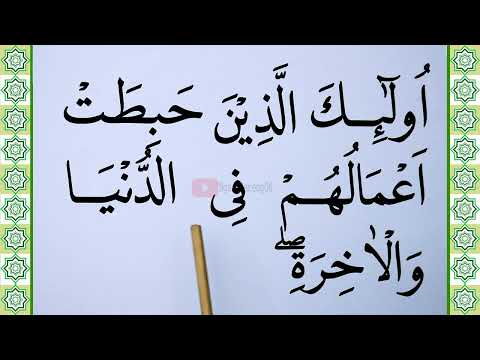 اُولٰٓئِكَ الَّذِيْنَ حَبِطَتْ
اَعْمَالُهُمْ فِى الدُّنْيَا
وَالْاٰخِرَةِۖ